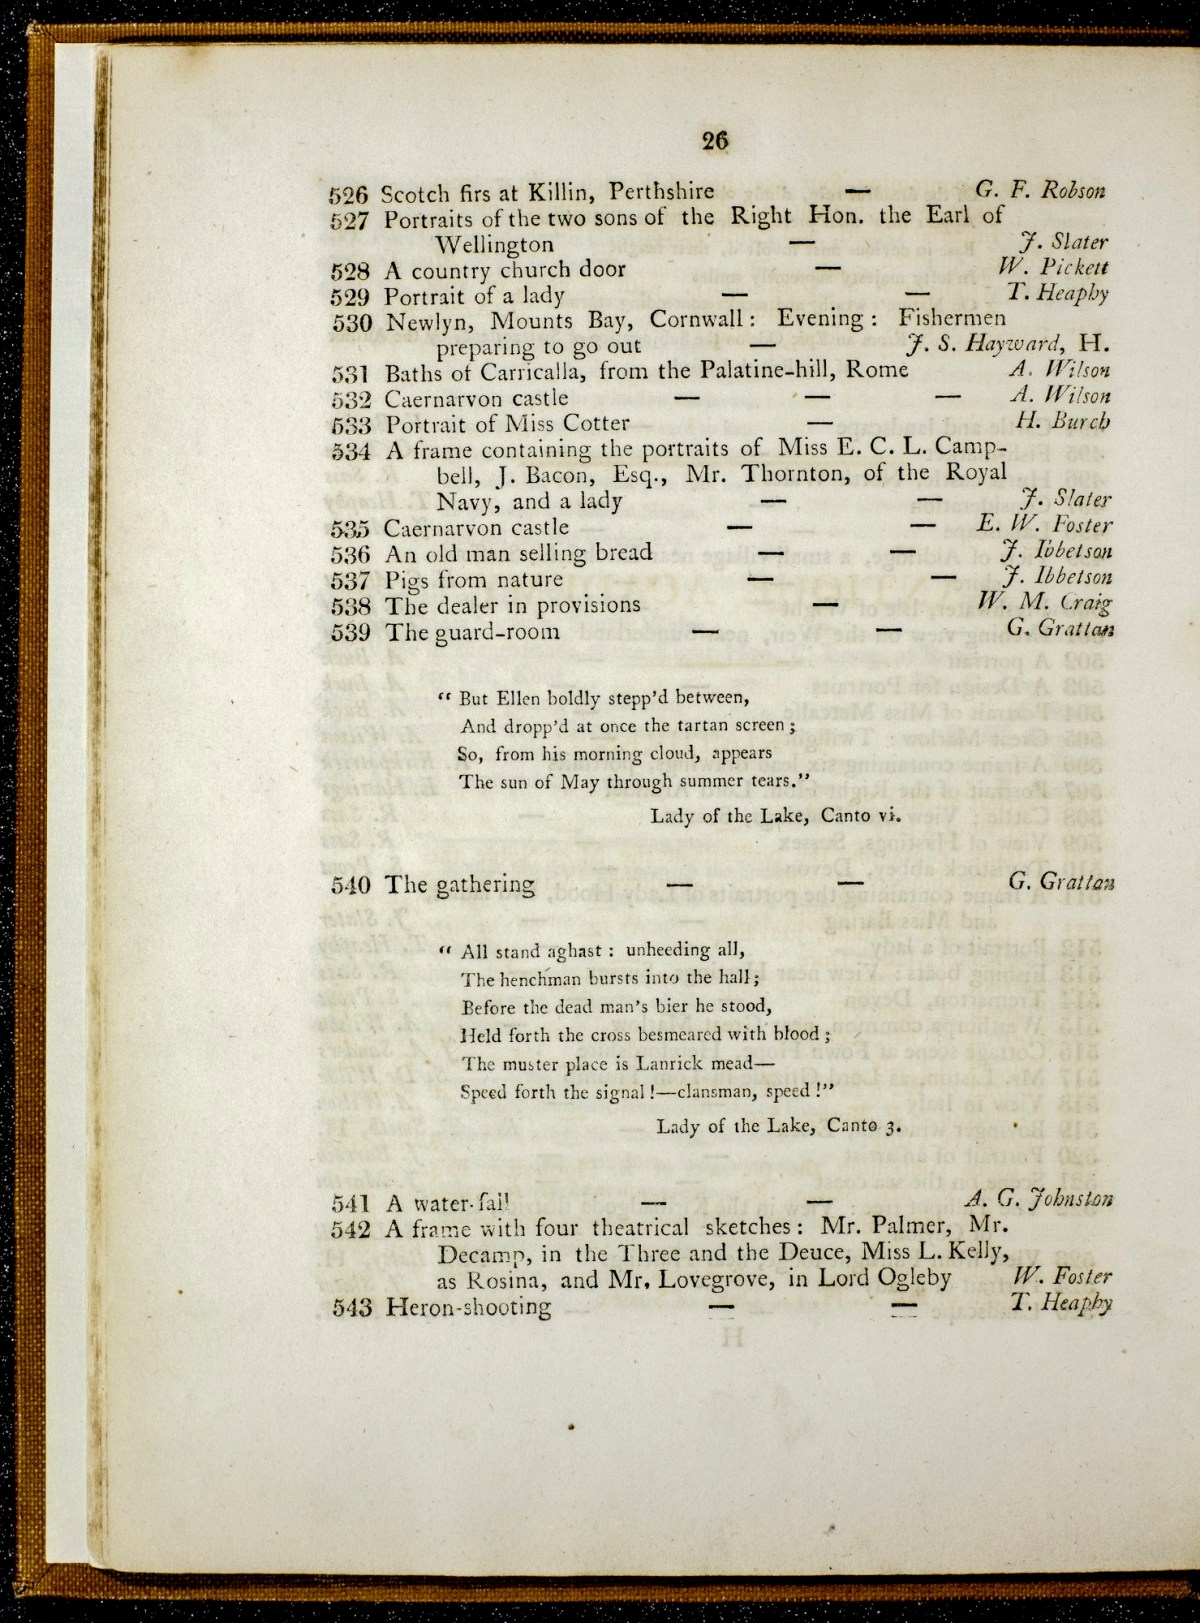 26
526 Scotch firs at Killin, Perthshire — G. F. Robson
527 Portraits of the two sons of the Right Hon. the Earl of
Wellington — J. Slater
528 A country church door — W. Pickett
529 Portrait of a lady — — T. Heaphy
530 Newlyn, Mounts Bay, Cornwall: Evening: Fishermen
preparing to go out — J. S. Hayward, H.
531 Baths of Carricalla, from the Palatine-hill, Rome A. Wilson
532 Caernarvon castle — — — A. Wilson
533 Portrait of Miss Cotter — H. Burch
534 A frame containing the portraits of Miss E. C. L. Camp-
bell, J. Bacon, Esq., Mr. Thornton, of the Royal
Navy, and a lady — — J. Slater
535 Caernarvon castle — — E. W. Foster
536 An old man selling bread — — J. Ibbetson
537 Pigs from nature — — J. Ibbetson
538 The dealer in provisions — W. M. Craig
539 The guard-room — — G. Grattan
“ But Ellen boldly stepp’d between,
And dropp’d at once the tartan screen ;
So, from his morning cloud, appears
The sun of May through summer tears.”
Lady of the Lake, Canto vi.
540 The gathering — — G. Grattan
“ All stand aghast : unheeding all,
The henchman bursts into the hall ;
Before the dead man’s bier he stood,
Held forth the cross besmeared with blood ;
The muster place is Lanrick mead—
Speed forth the signal !—clansman, speed !”
Lady of the Lake, Canto 3.
541 A water-fall — — A. G. Johnston
542 A frame with four theatrical sketches : Mr. Palmer, Mr.
Decamp, in the Three and the Deuce, Miss L. Kelly,
as Rosina, and Mr. Lovegrove, in Lord Ogleby W. Foster
543 Heron-shooting — — T. Heaphy